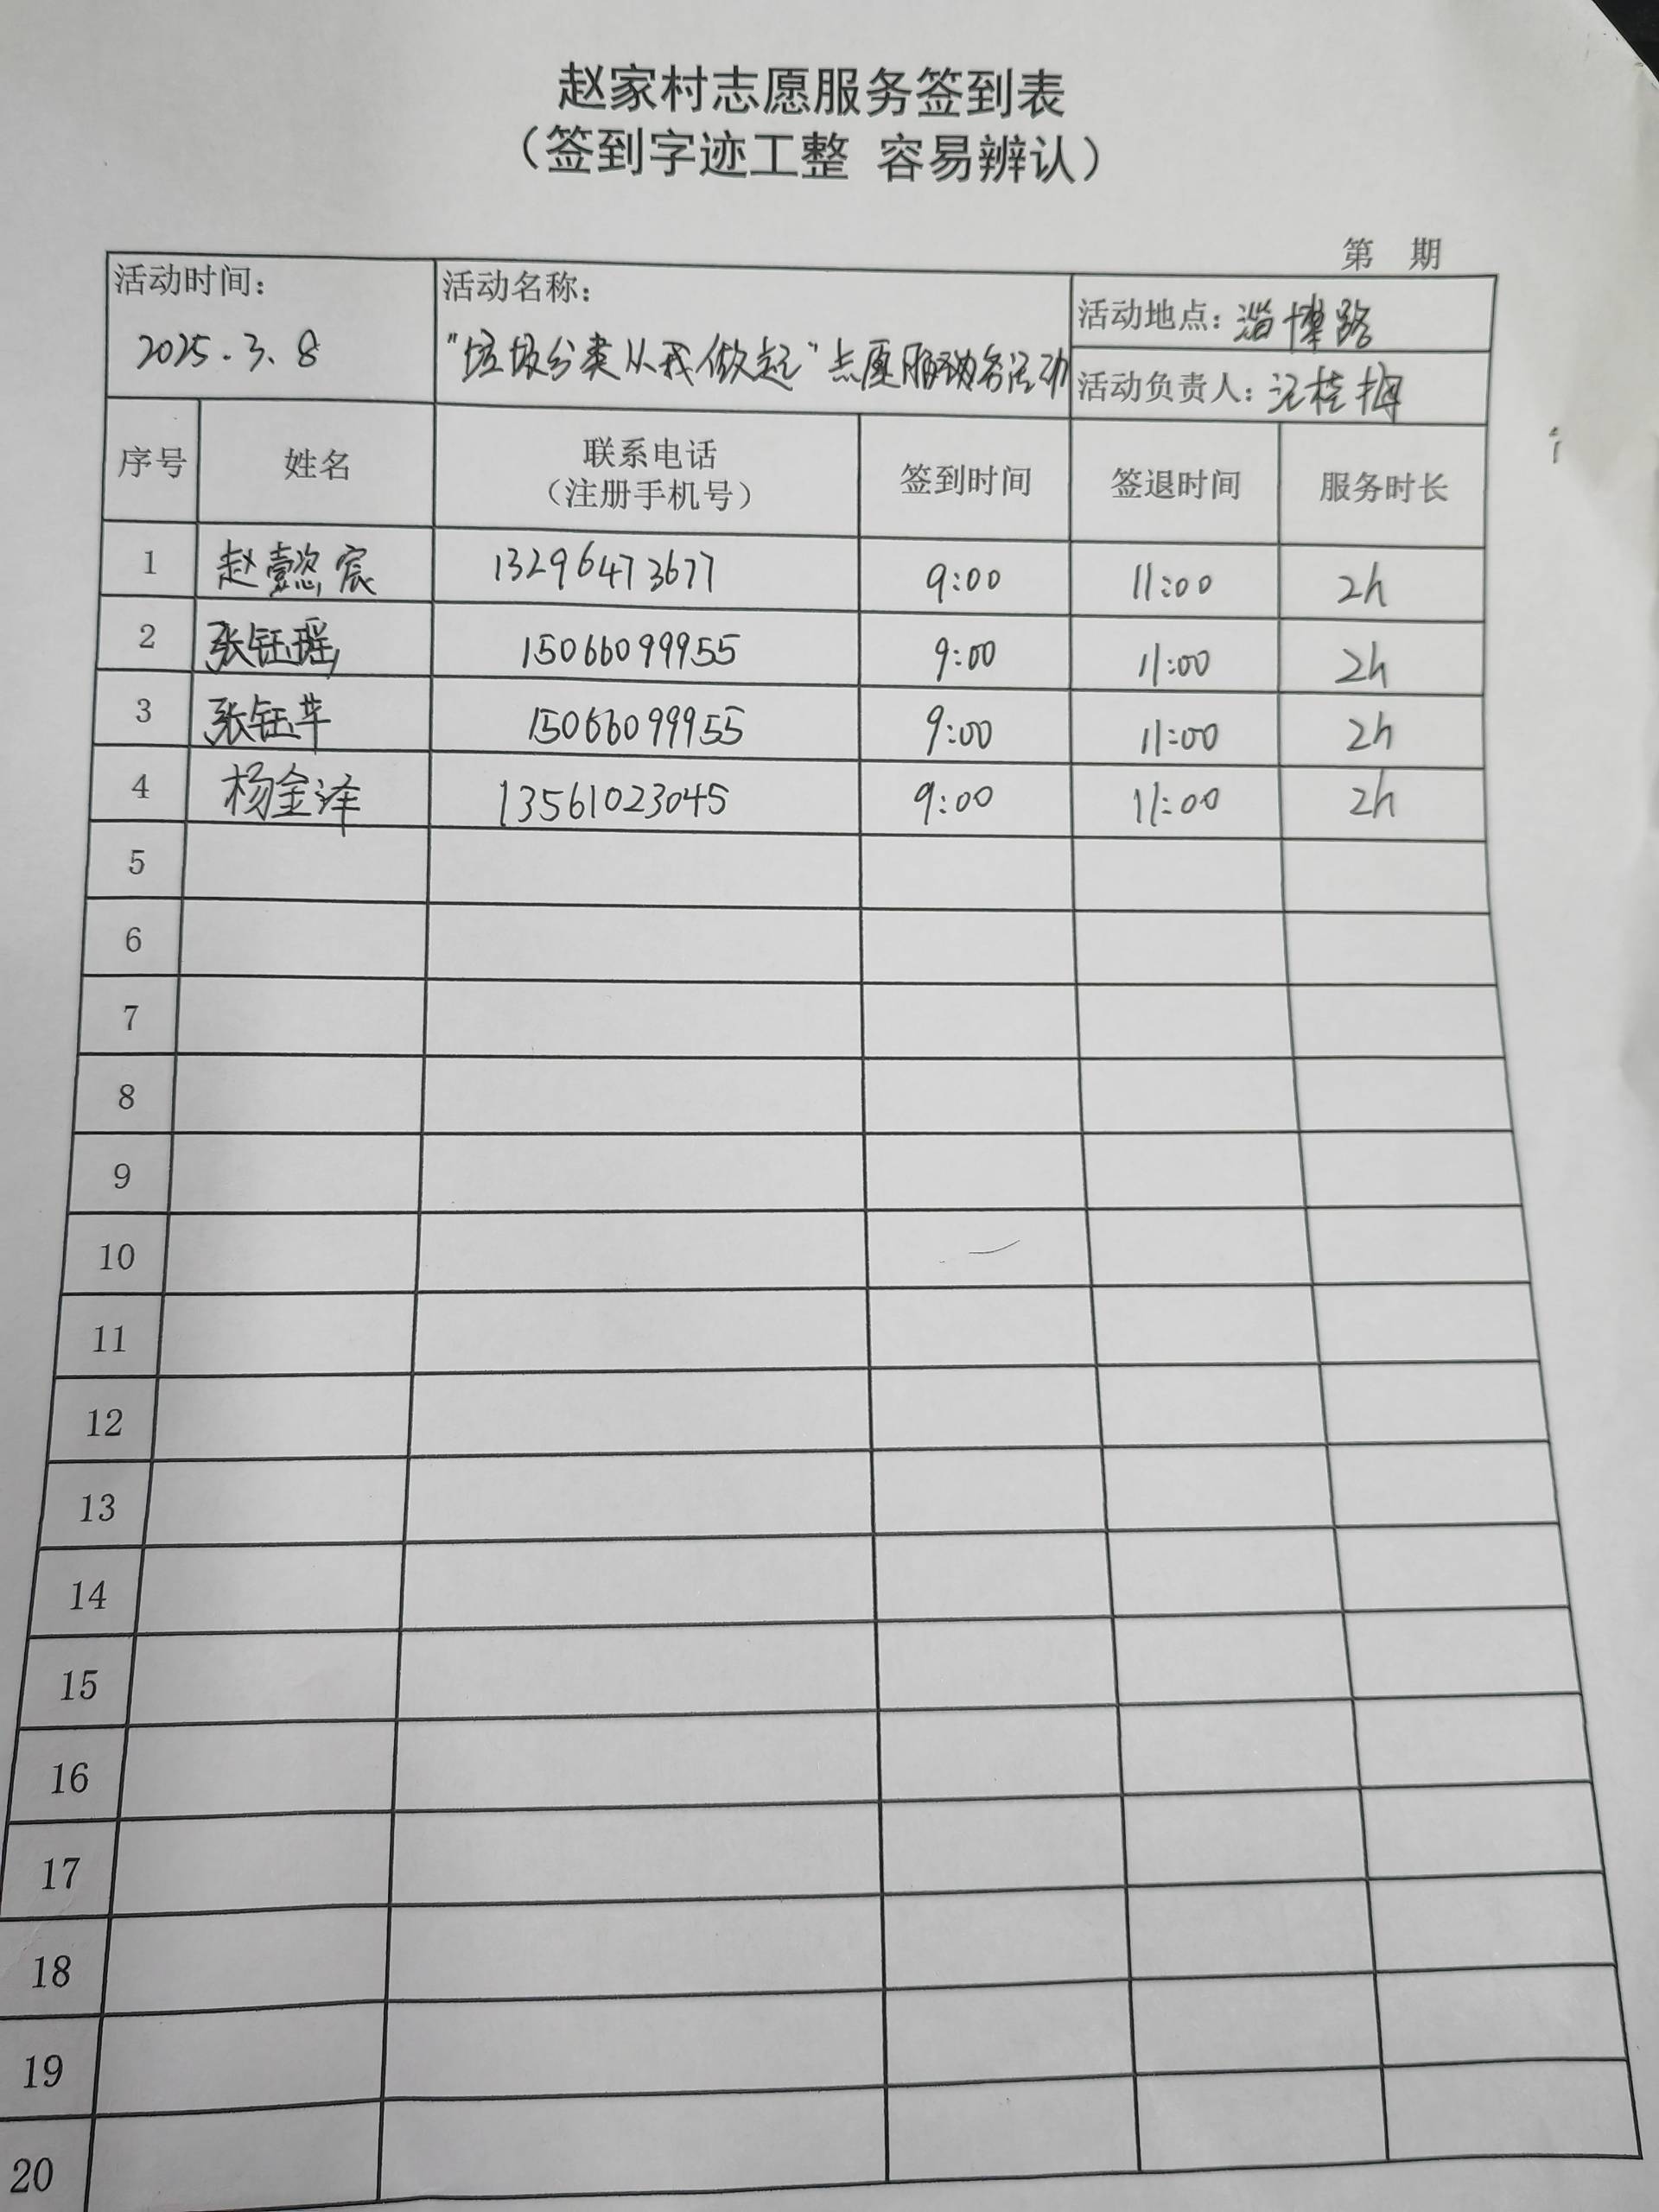 赵家村志愿服务签到表
（签到字迹工整 容易辨认）
第 期
活动时间：
2025.3.8
活动名称：
"垃圾分类从我做起"志愿服务活动
活动地点：淄博路
活动负责人：江桂梅
序号 姓名 联系电话（注册手机号） 签到时间 签退时间 服务时长
1 赵懿宸 13296473677 9:00 11:00 2h
2 张钰瑶 15066099955 9:00 11:00 2h
3 张钰芊 15066099955 9:00 11:00 2h
4 杨金泽 13561023045 9:00 11:00 2h
5
6
7
8
9
10
11
12
13
14
15
16
17
18
19
20